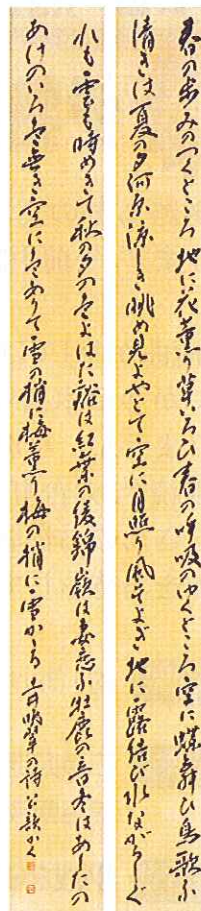 春の歩みのつくところ 地に花薫り草いろひ春の呼吸のゆくところ空に蝶舞ひ鳥歌ふ
清きは夏の夕河原涼しき眺め見よやとて空に月照り風そよぎ地に露結び水ながるしぐ
れも雲も時めきて秋の夕の色よはた谿は紅葉の綾錦嶺は妻恋ふ牡鹿の音冬はあしたの
あけのいろ色無き空に色ありて雪の梢に梅薫り梅の梢に雪かゝる 土井晩翠の詩 かく